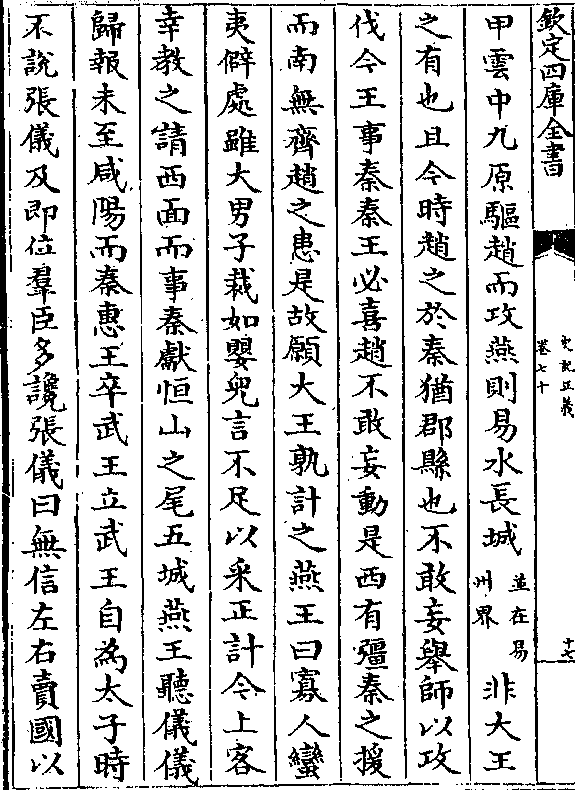 欽定四庫全書
史記正義
卷七十
十七
甲雲中九原驅趙而攻燕則易水長城並在易州界非大王
之有也且今時趙之於秦猶郡縣也不敢妄舉師以攻
伐今王事秦秦王必喜趙不敢妄動是西有彊秦之援
而南無齊趙之患是故願大王孰計之燕王曰寡人蠻
夷僻處雖大男子裁如嬰兒言不足以采正計今上客
幸教之請西面而事秦獻恒山之尾五城燕王聽儀儀
歸報未至咸陽而秦惠王卒武王立武王自為太子時
不說張儀及即位羣臣多讒張儀曰無信左右賣國以